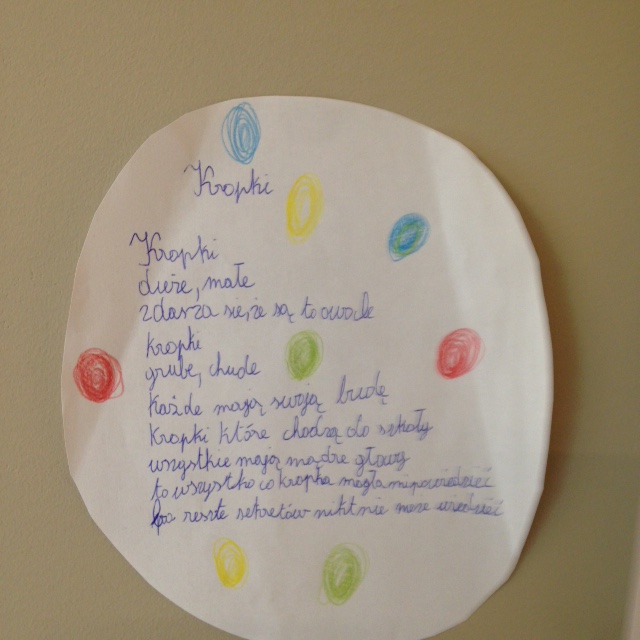 Kropki
Kropki
duże, małe
zdarza się, że są to owale
kropki
grube, chude
Każde mają swoją budę
Kropki które chodzą do szkoły
wszystkie mają mądre głowy
to wszystko co kropka mogła mi powiedzieć
bo reszte sekretów nikt nie może wiedzieć